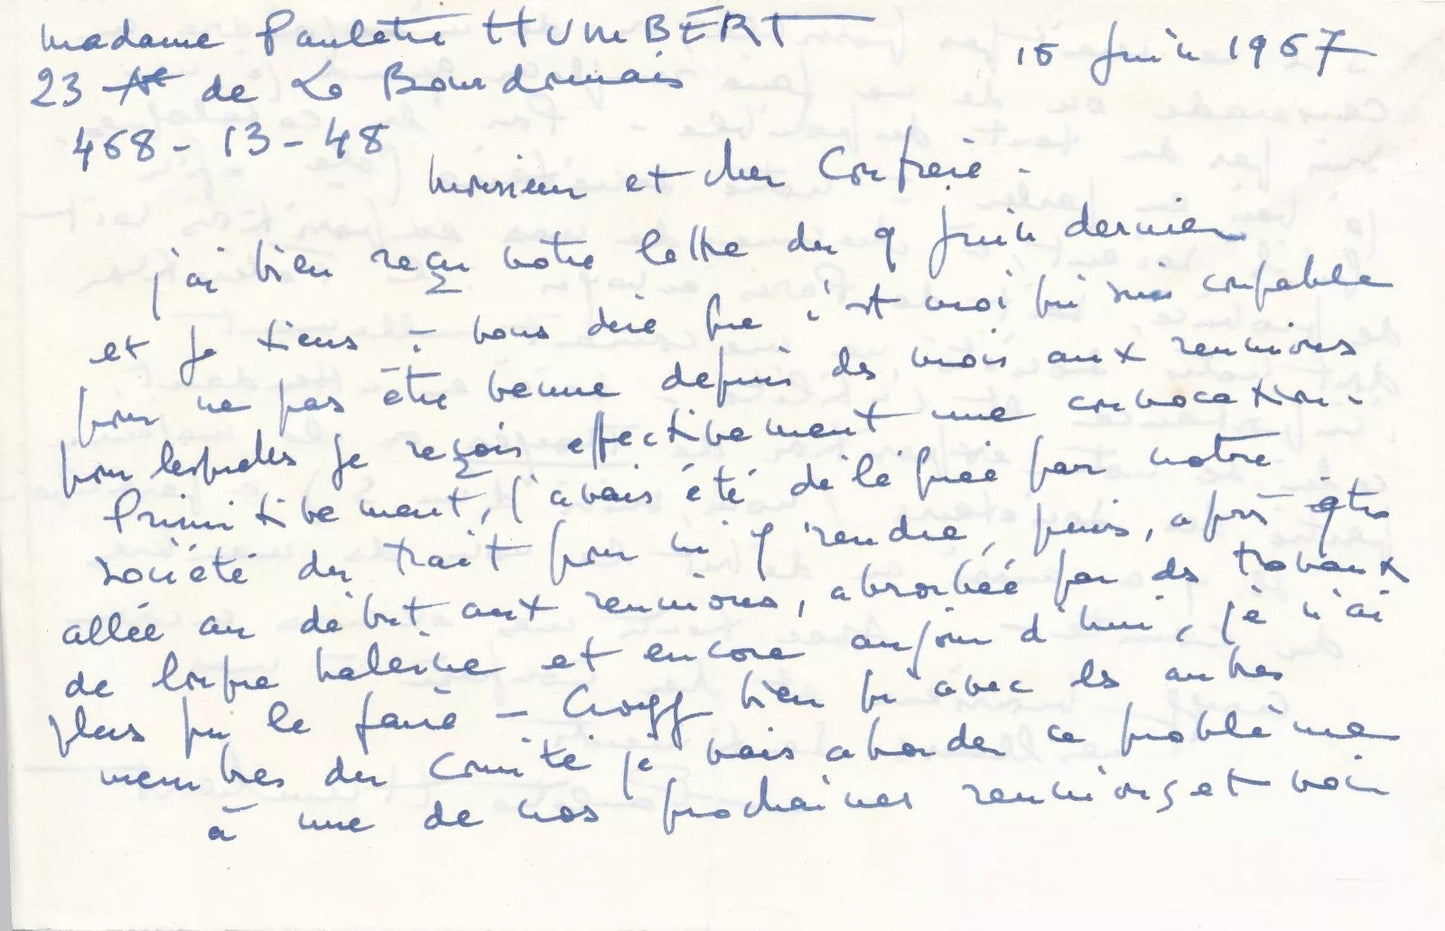 Madame Paulette HUMBERT
15 Juin 1967
23 Ave de La Bourdonnais
468-13-48
Monsieur et cher Confrère -
j'ai bien reçu votre lettre du 9 Juin dernier
et je tiens à vous dire que c'est moi qui suis coupable
pour ne pas être venue depuis des mois aux reunions
pour lesquelles je reçois effectivement une convocation -
Primitivement, j'avais été déléguée par notre
société du trait pour m'y rendre, puis, après être
allée au début aux reunions, absorbée par des travaux
de longue haleine et encore aujourd'hui, je n'ai
plus pu le faire - Croyez bien qu'avec les autres
membres du Comité je vais aborder ce problème
à une de nos prochaines reunions et voir